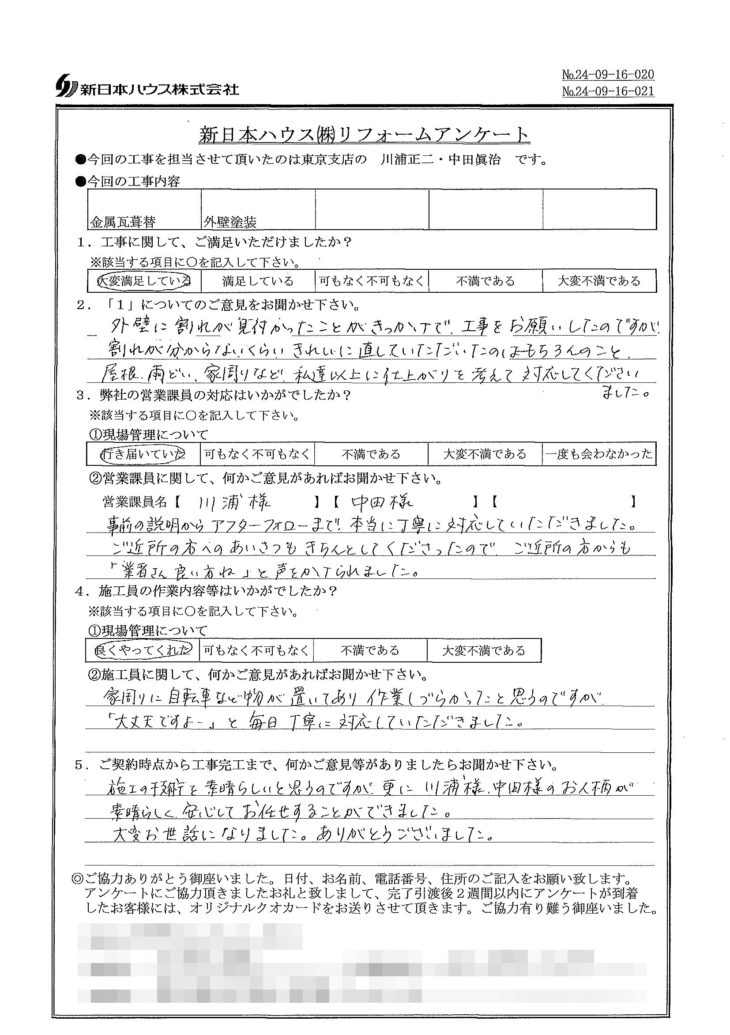 №24-09-16-020
新日本ハウス株式会社
№24-09-16-021
新日本ハウス㈱リフォームアンケート
●今回の工事を担当させて頂いたのは東京支店の 川浦正二・中田眞治 です。
●今回の工事内容
金属瓦葺替 外壁塗装
1．工事に関して、ご満足いただけましたか？
※該当する項目に○を記入して下さい。
大変満足している 満足している 可もなく不可もなく 不満である 大変不満である
2．「1」についてのご意見をお聞かせ下さい。
外壁に割れが見付かったことがきっかけで、工事をお願いしたのですが、
割れが分からないくらいきれいに直していただいたのはもちろんのこと、
屋根、雨どい、家周りなど、私達以上に仕上がりを考えて対応してください
ました。
3．弊社の営業課員の対応はいかがでしたか？
※該当する項目に○を記入して下さい。
①現場管理について
行き届いていた 可もなく不可もなく 不満である 大変不満である 一度も会わなかった
②営業課員に関して、何かご意見があればお聞かせ下さい。
営業課員名【 川浦様 】【 中田様 】【 】
事前の説明からアフターフォローまで、本当に丁寧に対応していただきました。
ご近所の方へのあいさつもきちんとしてくださったので、ご近所の方からも
「業者さん良い方ね」と声をかけられました。
4．施工員の作業内容等はいかがでしたか？
※該当する項目に○を記入して下さい。
①現場管理について
良くやってくれた 可もなく不可もなく 不満である 大変不満である
②施工員に関して、何かご意見があればお聞かせ下さい。
家周りに自転車など物が置いてあり作業しづらかったと思うのですが、
「大丈夫ですよー」と毎日丁寧に対応していただきました。
5．ご契約時点から工事完工まで、何かご意見等がありましたらお聞かせ下さい。
施工の技術も素晴らしいと思うのですが、更に川浦様、中田様のお人柄が
素晴らしく、安心してお任せすることができました。
大変お世話になりました。ありがとうございました。
◎ご協力ありがとう御座いました。日付、お名前、電話番号、住所のご記入をお願い致します。
アンケートにご協力頂きましたお礼と致しまして、完了引渡後2週間以内にアンケートが到着
したお客様には、オリジナルクオカードをお送りさせて頂きます。ご協力有り難う御座いました。